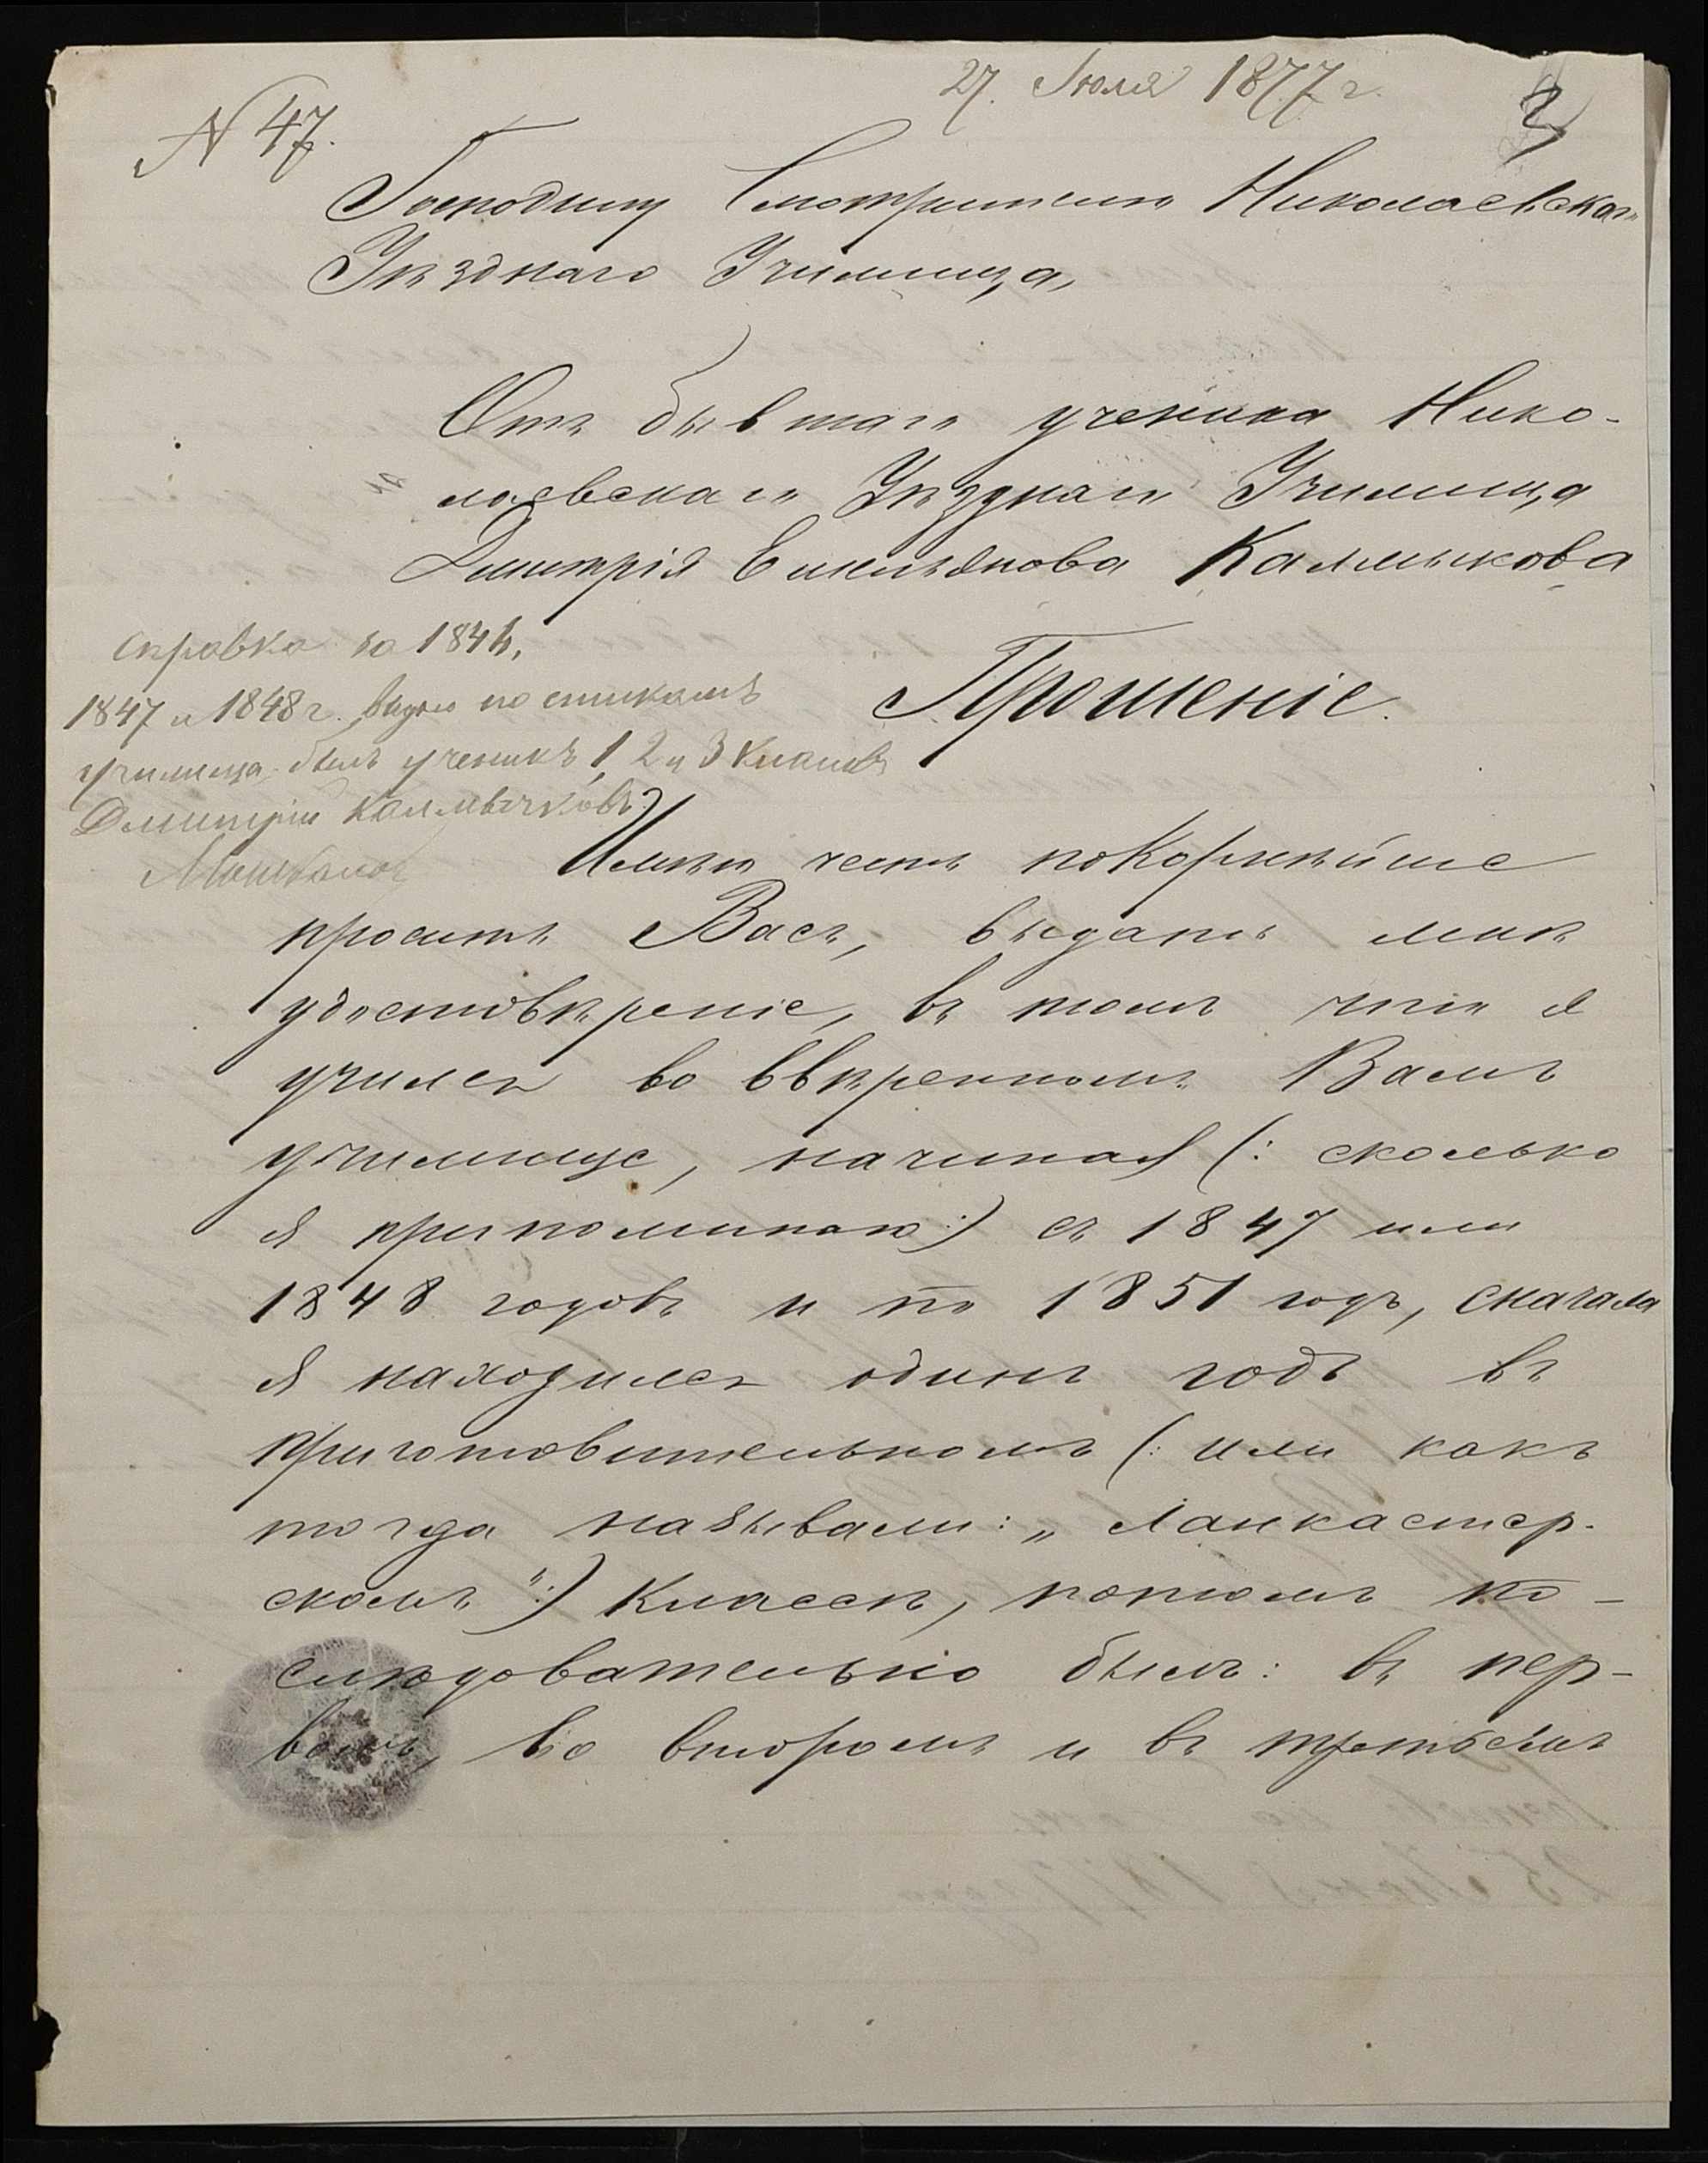 27. Іюля 1877 г.
№ 47.
Господину Смотрителю Николаевскаго
Уѣзднаго Училища,
Отъ бывшаго ученика Нико-
лаевскаго Уѣзднаго Училища
Димитрія Емельянова Калмыкова
Прошеніе.
справка за 184
1847 и 1848 г. видно по спискамъ
училища былъ ученикъ 1, 2 и 3 классовъ
Дмитрій Калмычковъ
Имѣю честь покорнѣйше
просить Васъ, выдать мнѣ
удостовѣреніе, въ томъ что я
учился во ввѣренномъ Вамъ
училище, начиная (: сколько
я припоминаю :) съ 1847 или
1848 годовъ и по 1851 годъ, сначала
я находился одинъ годъ въ
приготовительномъ (: или какъ
тогда называли: „Ланкастер-
скомъ" :) классѣ, потомъ по-
слѣдовательно былъ: въ пер-
вомъ, во второмъ и въ третьемъ